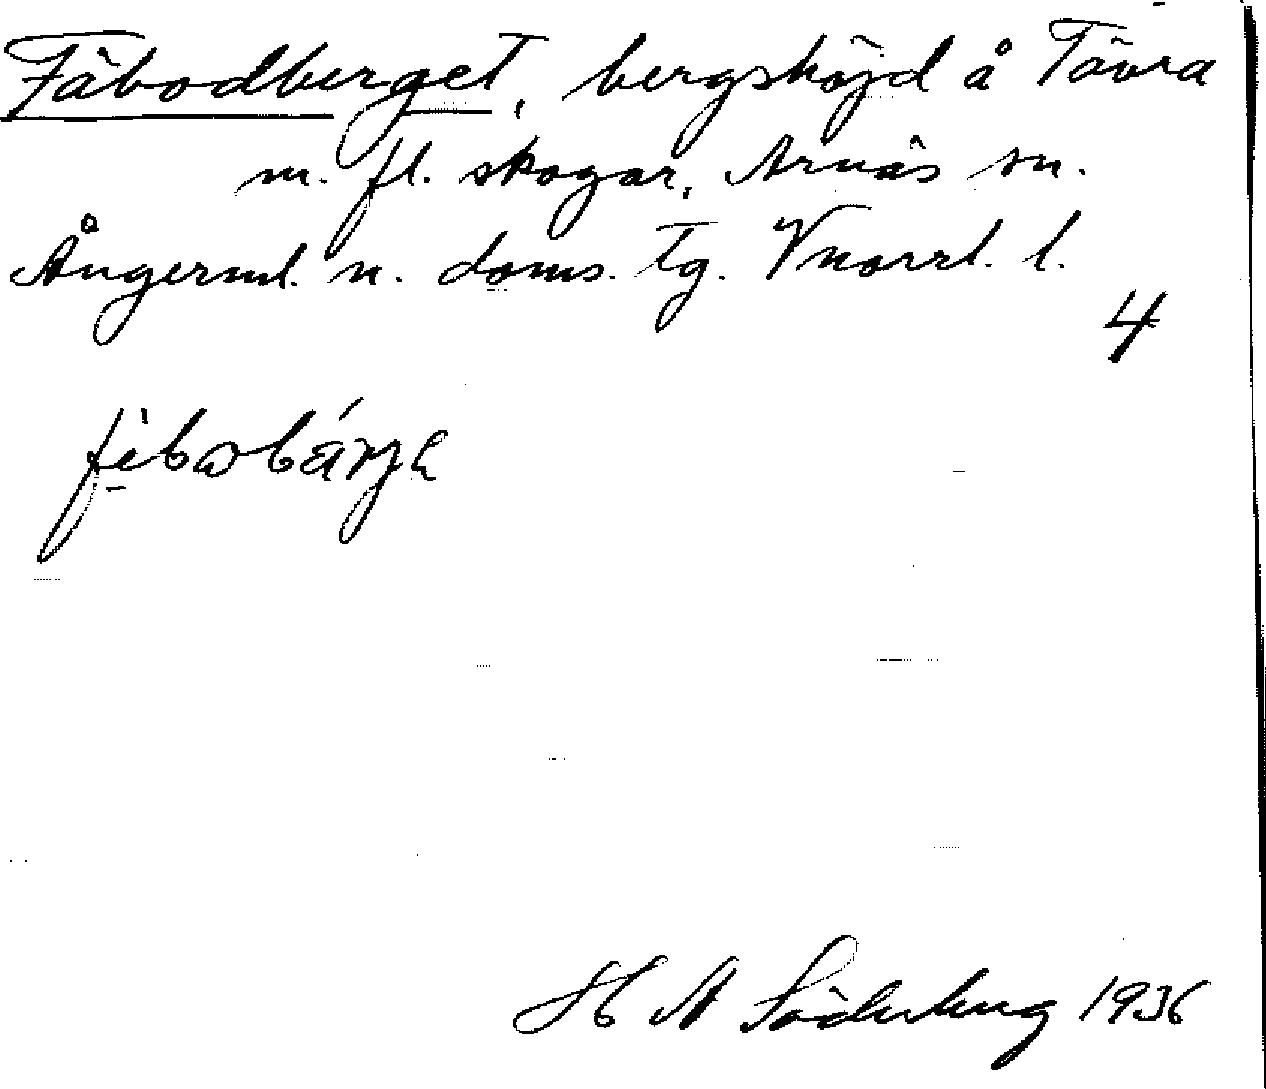 Fäbodberget, bergshöjd å Tävra
m. fl. skogar, Arnäs sn.
Ångerml. n. doms. tg. Vnorrl. l.
4
H A Söderberg 1936